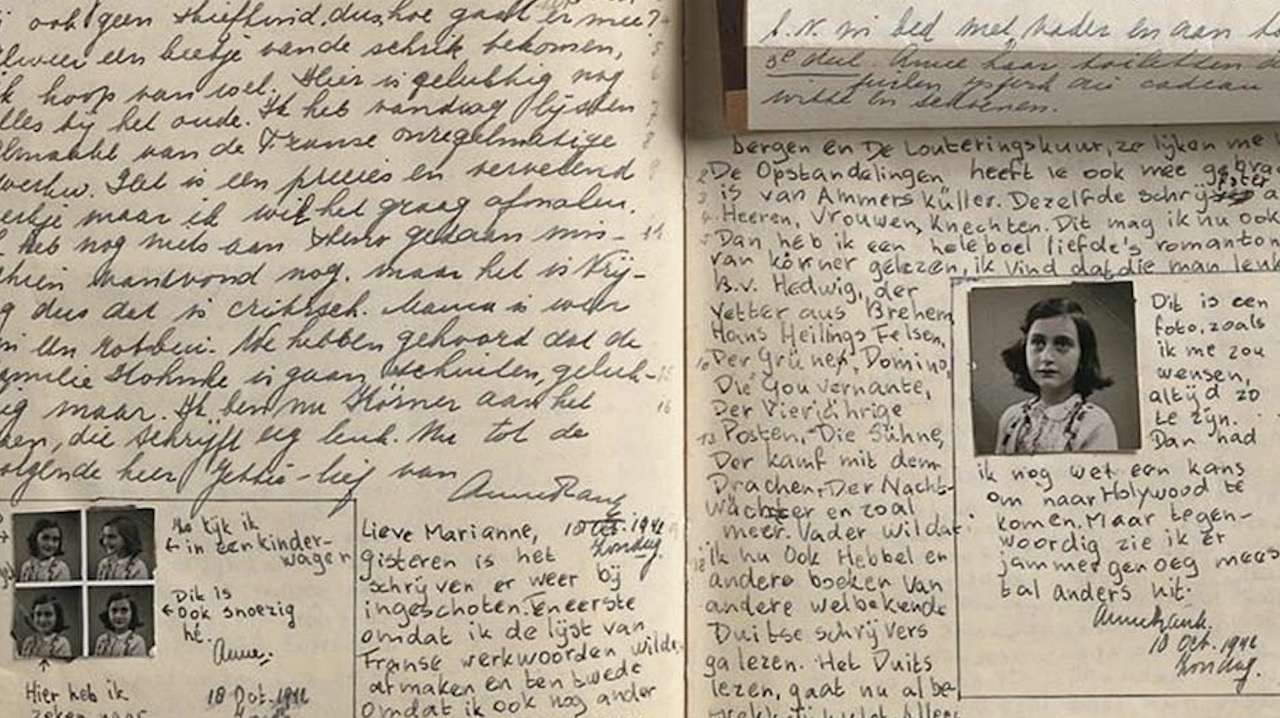 ook geen stiefkind, dus, hoe gaat er mee?
weer een beetje van de schrik bekomen,
ik hoop van wel. Hier is gelukkig nog
alles bij het oude. Ik heb vandaag lijsten
afgemaakt van de Franse onregelmatige
werkw. Het is een precies en vervelend
werkje maar ik wil het graag afmaken.
heb nog niets aan Steno gedaan mis-
schien vanavond nog. maar het is Vrij-
dag dus dat is critisch. Mama is weer
We hebben gehoord dat de
familie is gaan scheiden, geluk-
kig maar. Ik ben nu Körner aan het
lezen, die schrijft erg leuk. Nu tot de
volgende keer Jettie-lief van
Anne Frank
5
6
7
8
9
11
15
16
← Zo kijk ik
in een kinder-
wagen
Dit is
← ook snoezig
hè.
Anne.
Hier heb ik
zeker naar
18 Oct. 1942
Lieve Marianne,
18 Oct. 1942
Zondag.
gisteren is het
schrijven er weer bij
ingeschoten. Ten eerste
omdat ik de lijst van
Franse werkwoorden wilde
afmaken en ten twede
omdat ik ook nog ander
in bed met vader en aan
3e deel. Anne haar toiletten
cadeau
witte en schoenen.
bergen en De Louteringskuur, ze lijken me
De Opstandelingen heeft ie ook mee gebrac
is van Ammers Küller. Dezelfde schrijfster a
Heeren, Vrouwen, Knechten. Dit mag ik nu ook
Dan heb ik een heleboel liefde's romanton
van körner gelezen, ik vind dat die man leuk
B.v. Hedwig, der
Vetter aus Brehem
Hans Heilings Felsen,
Der Grüner, Domino,
Die Gouvernante,
Der Vierjährige
Posten, Die Sühne,
Der kamf mit dem
Drachen, Der Nacht-
wächter en zoal
meer. Vader wil dat
ik nu ook Hebbel en
andere boeken van
andere welbekende
Duitse schrijvers
ga lezen. Het Duits
lezen, gaat nu al be-
Dit is een
foto, zoals
ik me zou
wensen,
altijd zo
te zijn.
Dan had
ik nog wel een kans
om naar Holywood te
komen. Maar tegen-
woordig zie ik er
jammer genoeg mees
tal anders uit.
Anne Frank.
18 Oct. 1942
Zondag.